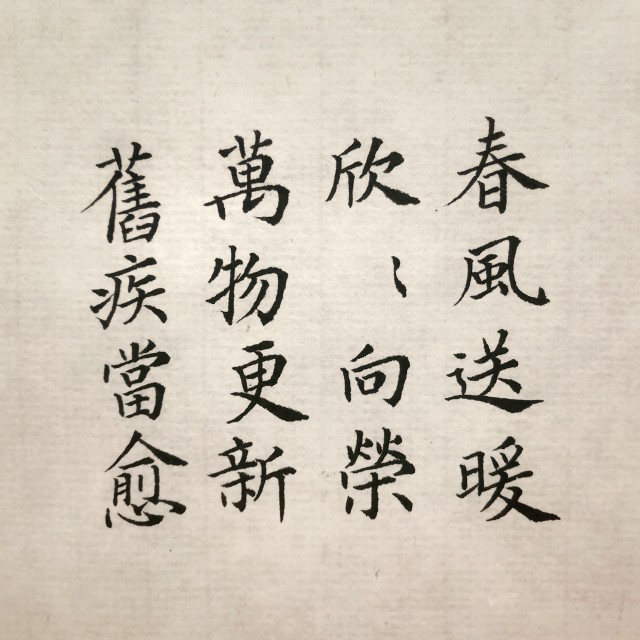 春風送暖
欣〻向榮
萬物更新
舊疾當愈